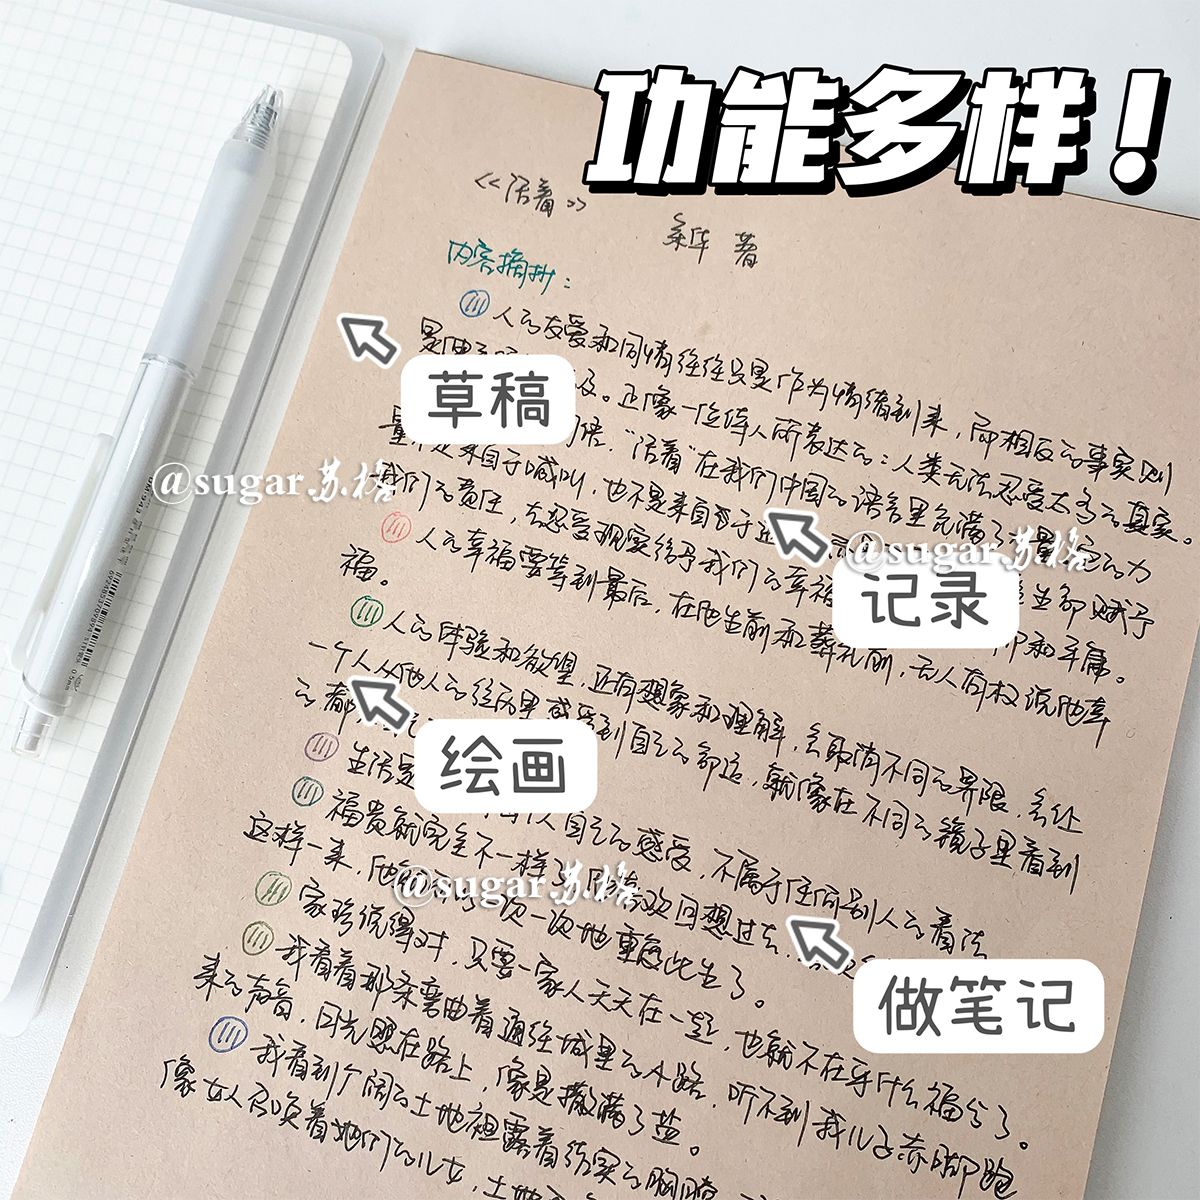 功能多样！
《活着》
余华 著
内容摘抄：
人的友爱和同情往往只是作为情绪到来，而相反的事实则
是
及。正像一位伟人所表达的：人类无法忍受太多的真实。
“活着”在我们中国的语言里充满了力量，它的力
量不是来自于喊叫，也不是来自于进
我们的责任，去忍受现实给予我们的幸福
和平庸。
人的幸福要等到最后，在他生前和葬礼前，无人有权说他幸
福。
人的体验和欲望，还有想象和理解，会取消不同的界限，会让
一个人从他人的经历里感受到自己的命运，就像在不同的镜子里看到
的都
生活是
个人自己的感受，不属于任何别人的看法
福贵就完全不一样了，他喜欢回想过去，
这样一来，他就可以一次一次地重度此生了。
家珍说得对，只要一家人天天在一起，也就不在乎什么福分了。
我看着那条弯曲着通往城里的小路，听不到我儿子赤脚跑
来的声音，月光照在路上，像是撒满了盐。
我看到广阔的土地袒露着结实的胸膛
像女人召唤着她们的儿女，土地
草稿
记录
绘画
做笔记
@sugar.苏格
@sugar.苏格
@sugar.苏格